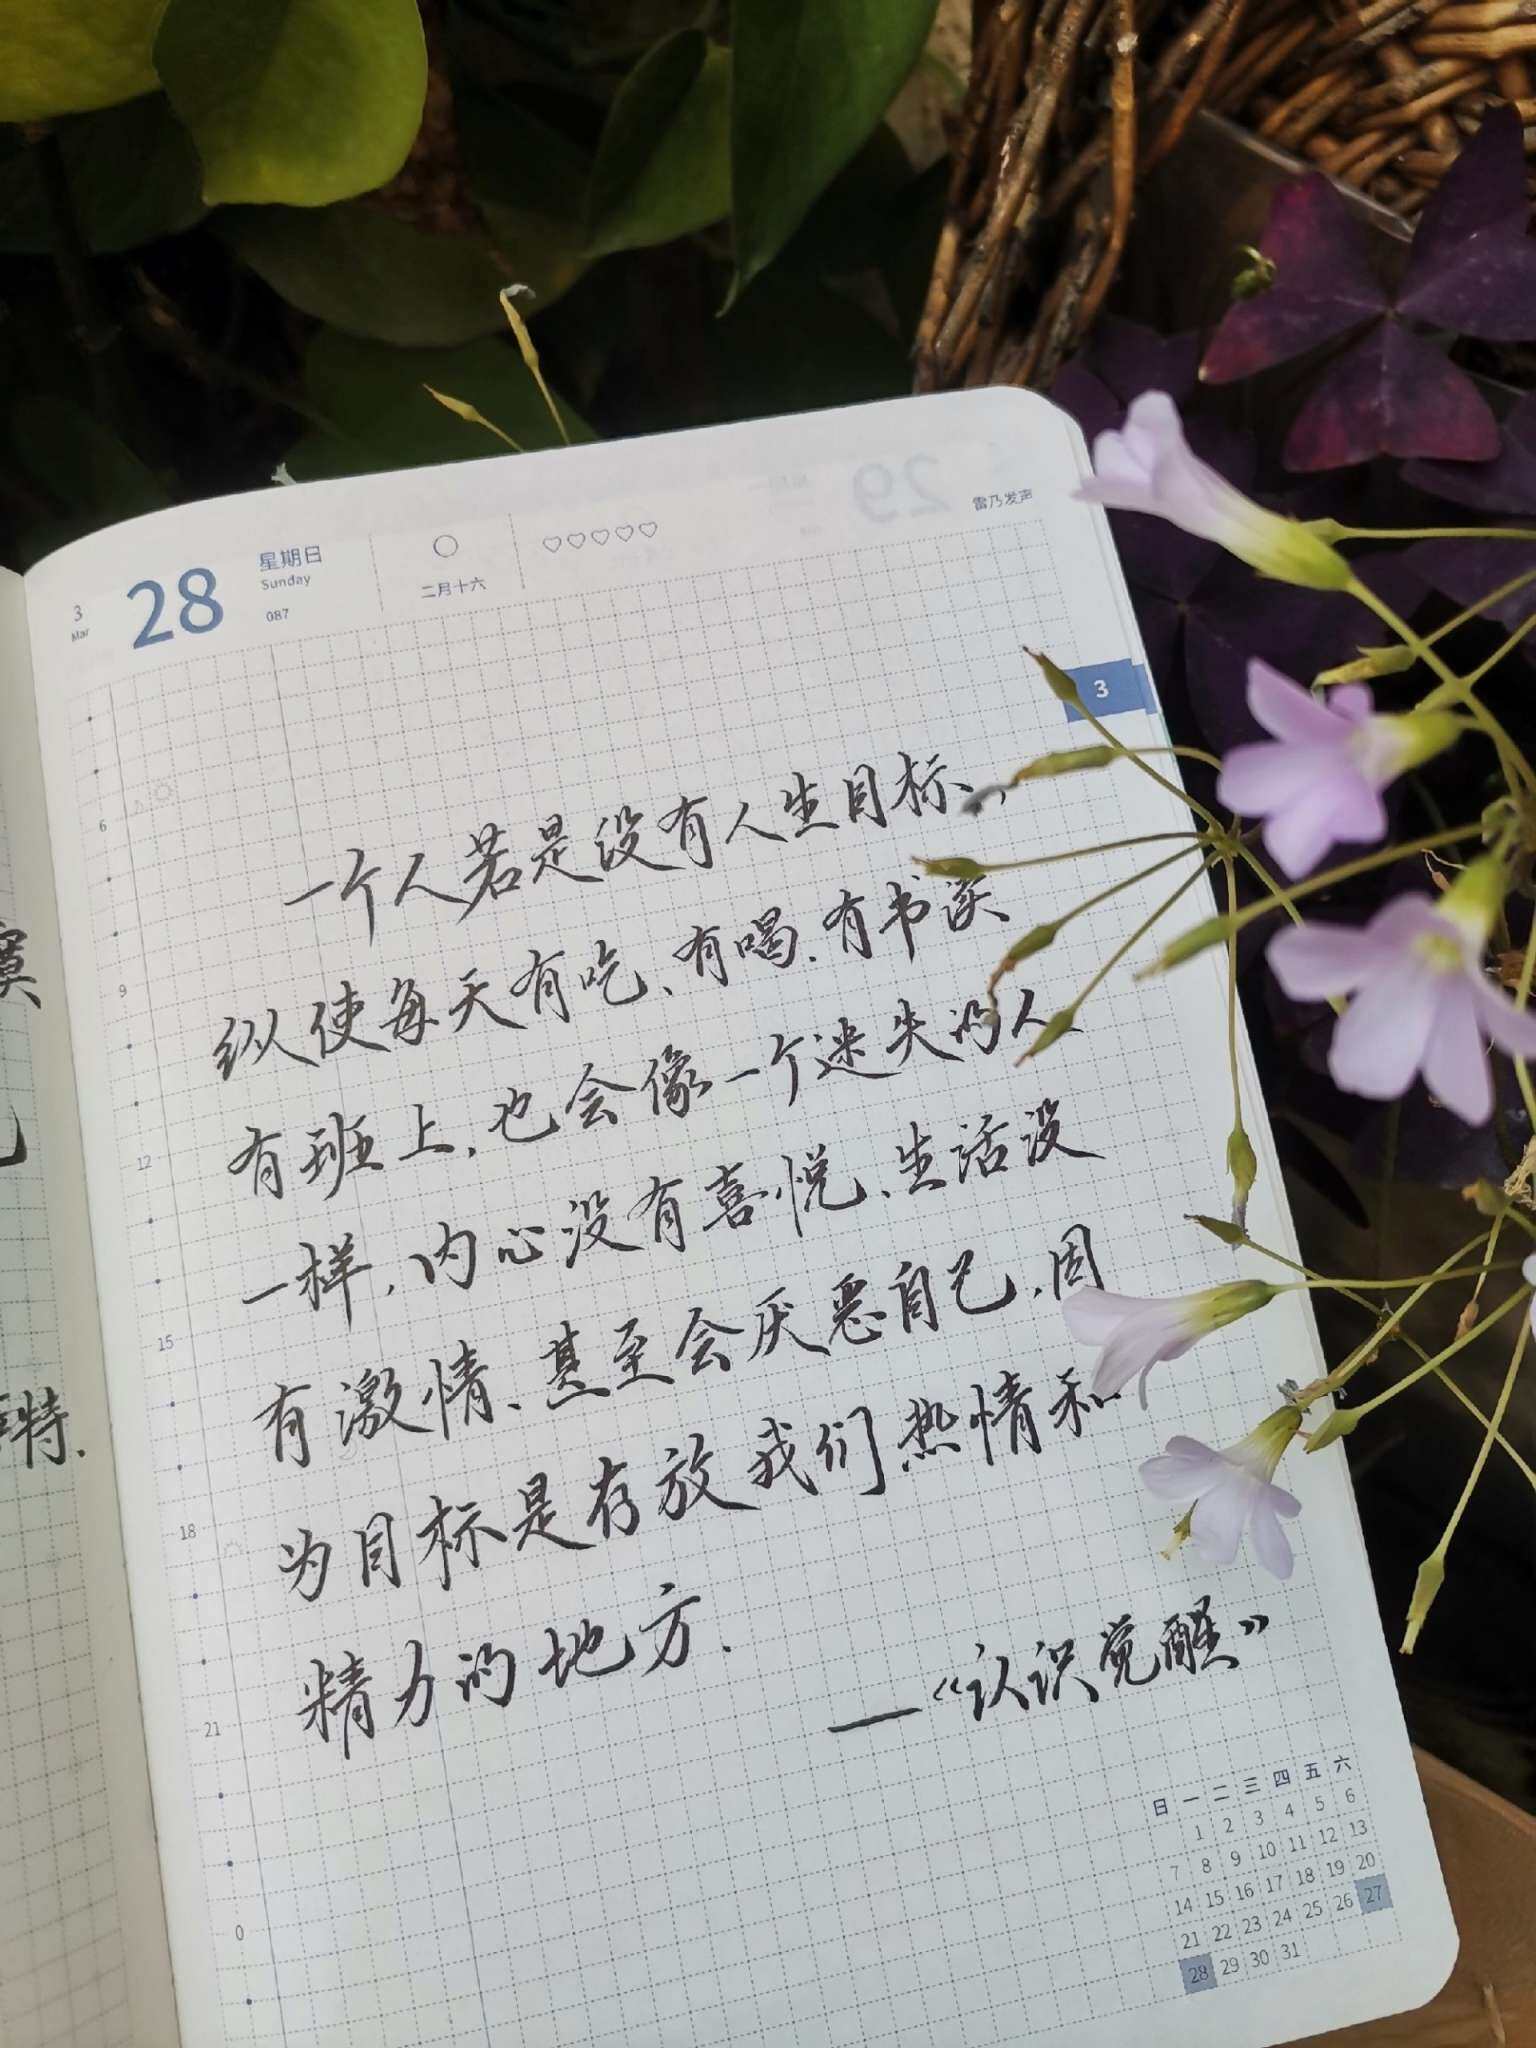 3
Mar
28
星期日
Sunday
087
二月十六
♡♡♡♡♡
29
雷乃发声
3
一个人若是没有人生目标、
纵使每天有吃、有喝.有书读
有班上.也会像一个迷失的人
一样.内心没有喜悦、生活没
有激情、甚至会厌恶自己.因
为目标是存放我们热情和
精力的地方.
——《认识觉醒》
6
9
12
15
18
21
0
日 一 二 三 四 五 六
1 2 3 4 5 6
7 8 9 10 11 12 13
14 15 16 17 18 19 20
21 22 23 24 25 26 27
28 29 30 31
特.